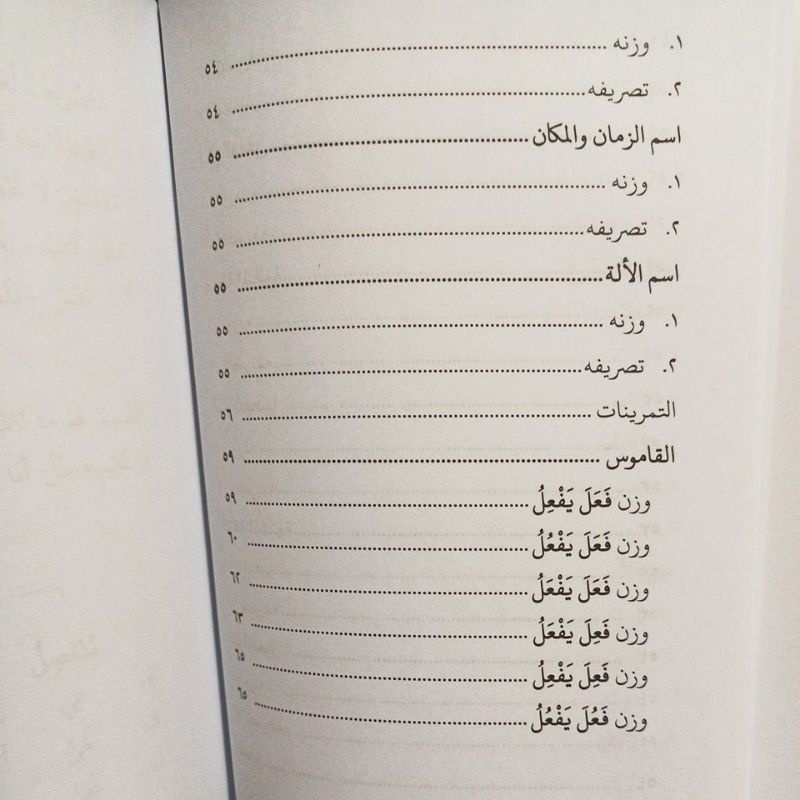 ١. وزنه ........ ٥٤
٢. تصريفه ........ ٥٤
اسم الزمان والمكان ........ ٥٥
١. وزنه ........ ٥٥
٢. تصريفه ........ ٥٥
اسم الألة ........ ٥٥
١. وزنه ........ ٥٥
٢. تصريفه ........ ٥٥
التمرينات ........ ٥٦
القاموس ........ ٥٩
وزن فَعَلَ يَفْعِلُ ........ ٥٩
وزن فَعَلَ يَفْعُلُ ........ ٦٠
وزن فَعَلَ يَفْعَلُ ........ ٦٢
وزن فَعِلَ يَفْعَلُ ........ ٦٣
وزن فَعِلَ يَفْعِلُ ........ ٦٥
وزن فَعُلَ يَفْعُلُ ........ ٦٥